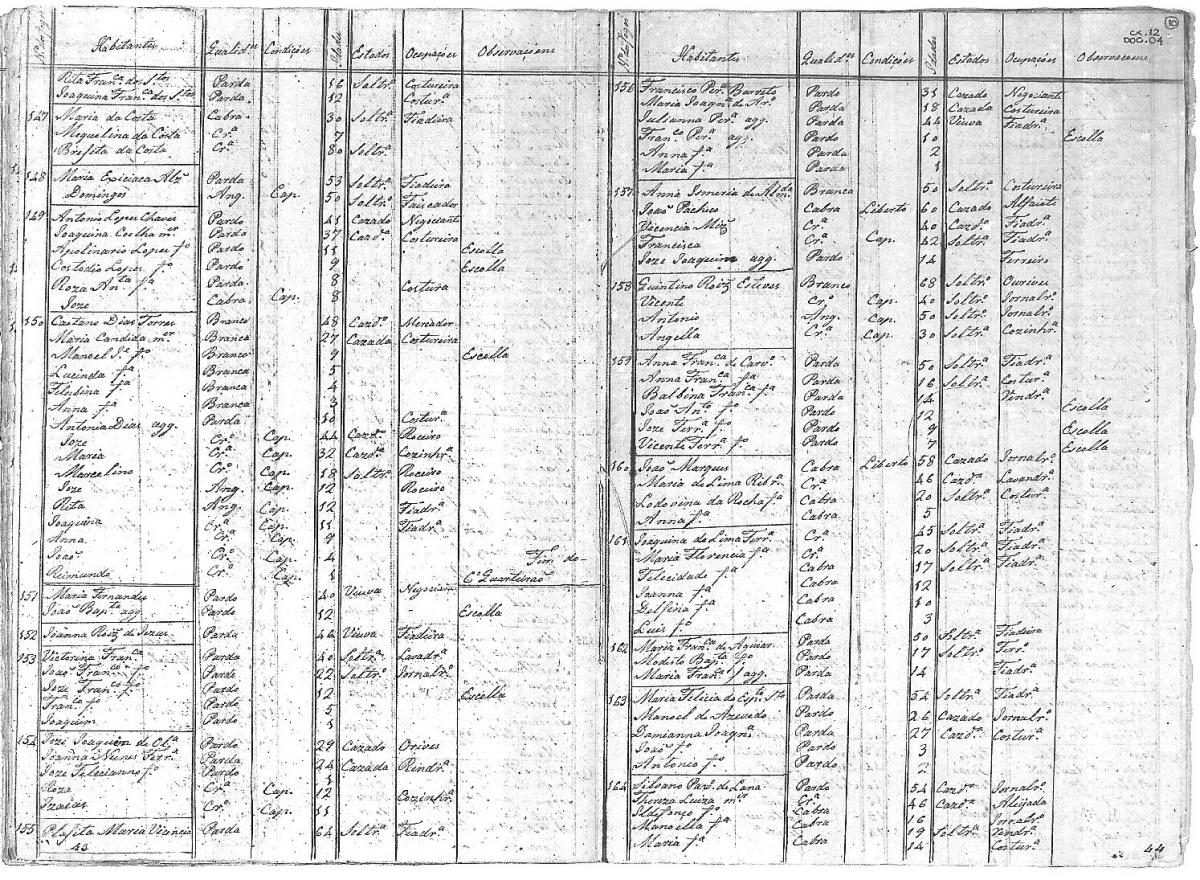 10
CX. 12
DOC. 04
Habitantes Qualid.es Condições Idades Estados Ocupações Observaçoens
Rita Fran.ca dos S.tos Parda 16 Soltr.ª Costureira
Joaquina Fran.ca dos S.tos Parda 12 Costur.ª
147 Maria da Costa Cabra 30 Soltr.ª Fiadeira
Miquelina da Costa Cr.ª 7
Brisita da Costa Cr.ª 80 Soltr.ª
148 Maria Epiciaca Alz Parda 53 Soltr.ª Fiadeira
Domingos Ang. Cap. 50 Soltr.º Faiscador
149 Antonio Lopes Chaves Pardo 41 Cazado Negociante
Joaquina Coelha m.er Parda 37 Cazd.ª Costureira
Apolinario Lopes f.º Pardo 11 Escolla
Custodio Lopes f.º Pardo 9 Escolla
Roza An.ta f.ª Parda 8 Costura
Joze Cabra Cap. 8
150 Caetano Dias Torres Branco 48 Cazd.º Mercador
Maria Candida m.er Branca 27 Cazada Costureira
Manoel S.ª f.º Branco 9 Escolla
Lucinda f.ª Branca 5
Filisbina f.ª Branca 4
Anna f.ª Branca 3
Antonia Dias agg. Parda 10 Costur.ª
Joze Cr.º Cap. 44 Cazd.º Roceiro
Maria Cr.ª Cap. 32 Cazd.ª Cozinhr.ª
Marcelino Cr.º Cap. 18 Soltr.º Roceiro
Joze Ang. Cap. 12 Roceiro
Rita Ang. Cap. 12 Fiadr.ª
Joaquina Cr.ª Cap. 11 Fiadr.ª
Anna Cr.ª Cap. 9
Joaõ Cr.º Cap. 4 Fim do
Reimundo Cr.º Cap. 1 6º Quarteiraõ
151 Maria Fernandes Parda 40 Viuva Negociam
Joaõ Bap.ta agg. Pardo 12 Escolla
152 Joanna Roiz de Jezus Parda 46 Viuva Fiadeira
153 Victorina Fran.ca Parda 40 Soltr.ª Lavadr.ª
Joaõ Fran.co f.º Pardo 22 Soltr.º Jornalr.º
Joze Fran.co f.º Pardo 12 Escolla
Fran.co f.º Pardo 5
Joaquim Pardo 1
154 Joze Joaquim de Ol.ª Pardo 29 Cazado Orives
Joanna Nunes Ferr.ª Parda 24 Cazada Rendr.ª
Joze Felecianno f.º Pardo 1
Roza Cr.ª Cap. 12 Cozinhr.ª
Izaias Cr.º Cap. 11
155 Plasita Maria Vicencia Parda 64 Soltr.ª Fiadr.ª
43
N. dos Fogos Habitantes Qualid.es Condições Idades Estados Ocupações Observacoens
156 Francisco Per.ª Barreto Pardo 31 Cazado Negociante
Maria Joaqn.ª de Ar.º Parda 18 Cazada Costureira
Julianna Per.ª agg. Parda 44 Viuva Fiadr.ª
Fran.co Per.ª ag. Pardo 10 Escolla
Anna f.ª Parda 2
Maria f.ª Parda 1
157 Anna Ismeria de Almd.ª Branca 50 Soltr.ª Costureira
Joaõ Pacheco Cabra Liberto 60 Cazado Alfaiate
Vicencia Miz Cr.ª 40 Cazd.ª Fiadr.ª
Francisca Cr.ª Cap. 42 Soltr.ª Fiadr.ª
Joze Joaquim agg. Pardo 14 Ferreiro
158 Quintino Roiz Esteves Branco 68 Soltr.º Ourives
Vicente Cr.º Cap. 40 Soltr.º Jornalr.º
Antonio Ang. Cap. 50 Soltr.º Jornalr.º
Angella Cr.ª Cap. 30 Soltr.ª Cozinhr.ª
159 Anna Fran.ca de Carv.º Parda 50 Soltr.ª Fiadr.ª
Anna Fran.ca f.ª Parda 16 Soltr.ª Costur.ª
Balbina Fran.ca f.ª Parda 14 Rendr.ª
Joaõ An.to f.º Pardo 12 Escolla
Joze Ferr.ª f.º Pardo 9 Escolla
Vicente Ferr.ª f.º Pardo 7 Escolla
160 Joaõ Marques Cabra Liberto 58 Cazado Jornalr.º
Maria de Lima Ribr.ª Cr.ª 46 Cazd.ª Lavandr.ª
Lodovina da Rocha f.ª Cabra 20 Soltr.ª Costur.ª
Anna f.ª Cabra 5
161 Joaquina de Lima Ferr.ª Cr.ª 45 Soltr.ª Fiadr.ª
Maria Florencia f.ª Cr.ª 20 Soltr.ª Fiadr.ª
Felicidade f.ª Cabra 17 Soltr.ª Fiadr.ª
Joanna f.ª Cabra 12
Delfina f.ª Cabra 10
Luis f.º Cabra 3
162 Maria Fran.ca de Aguiar Parda 50 Soltr.ª Fiadeira
Modesto Bap.ta f.º Pardo 17 Soltr.º Ferr.º
Maria Fran.ca agg. Parda 14 Fiadr.ª
163 Maria Felicia do Esp.to S.to Parda 54 Soltr.ª Fiadr.ª
Manoel de Azevedo Pardo 26 Cazado Jornalr.º
Damianna Joaqn.ª Parda 27 Cazd.ª Costur.ª
Joaõ f.º Pardo 3
Antonio f.º Pardo 2
164 Silvano Par.º de Lana Pardo 54 Cazd.º Jornalr.º
Thereza Luiza m.er Cr.ª 46 Cazd.ª Aleijada
Ildefonço f.º Cabra 16 Jornalr.º
Manoella f.ª Cabra 19 Soltr.ª Rendr.ª
Maria f.ª Cabra 14 Costur.ª
44